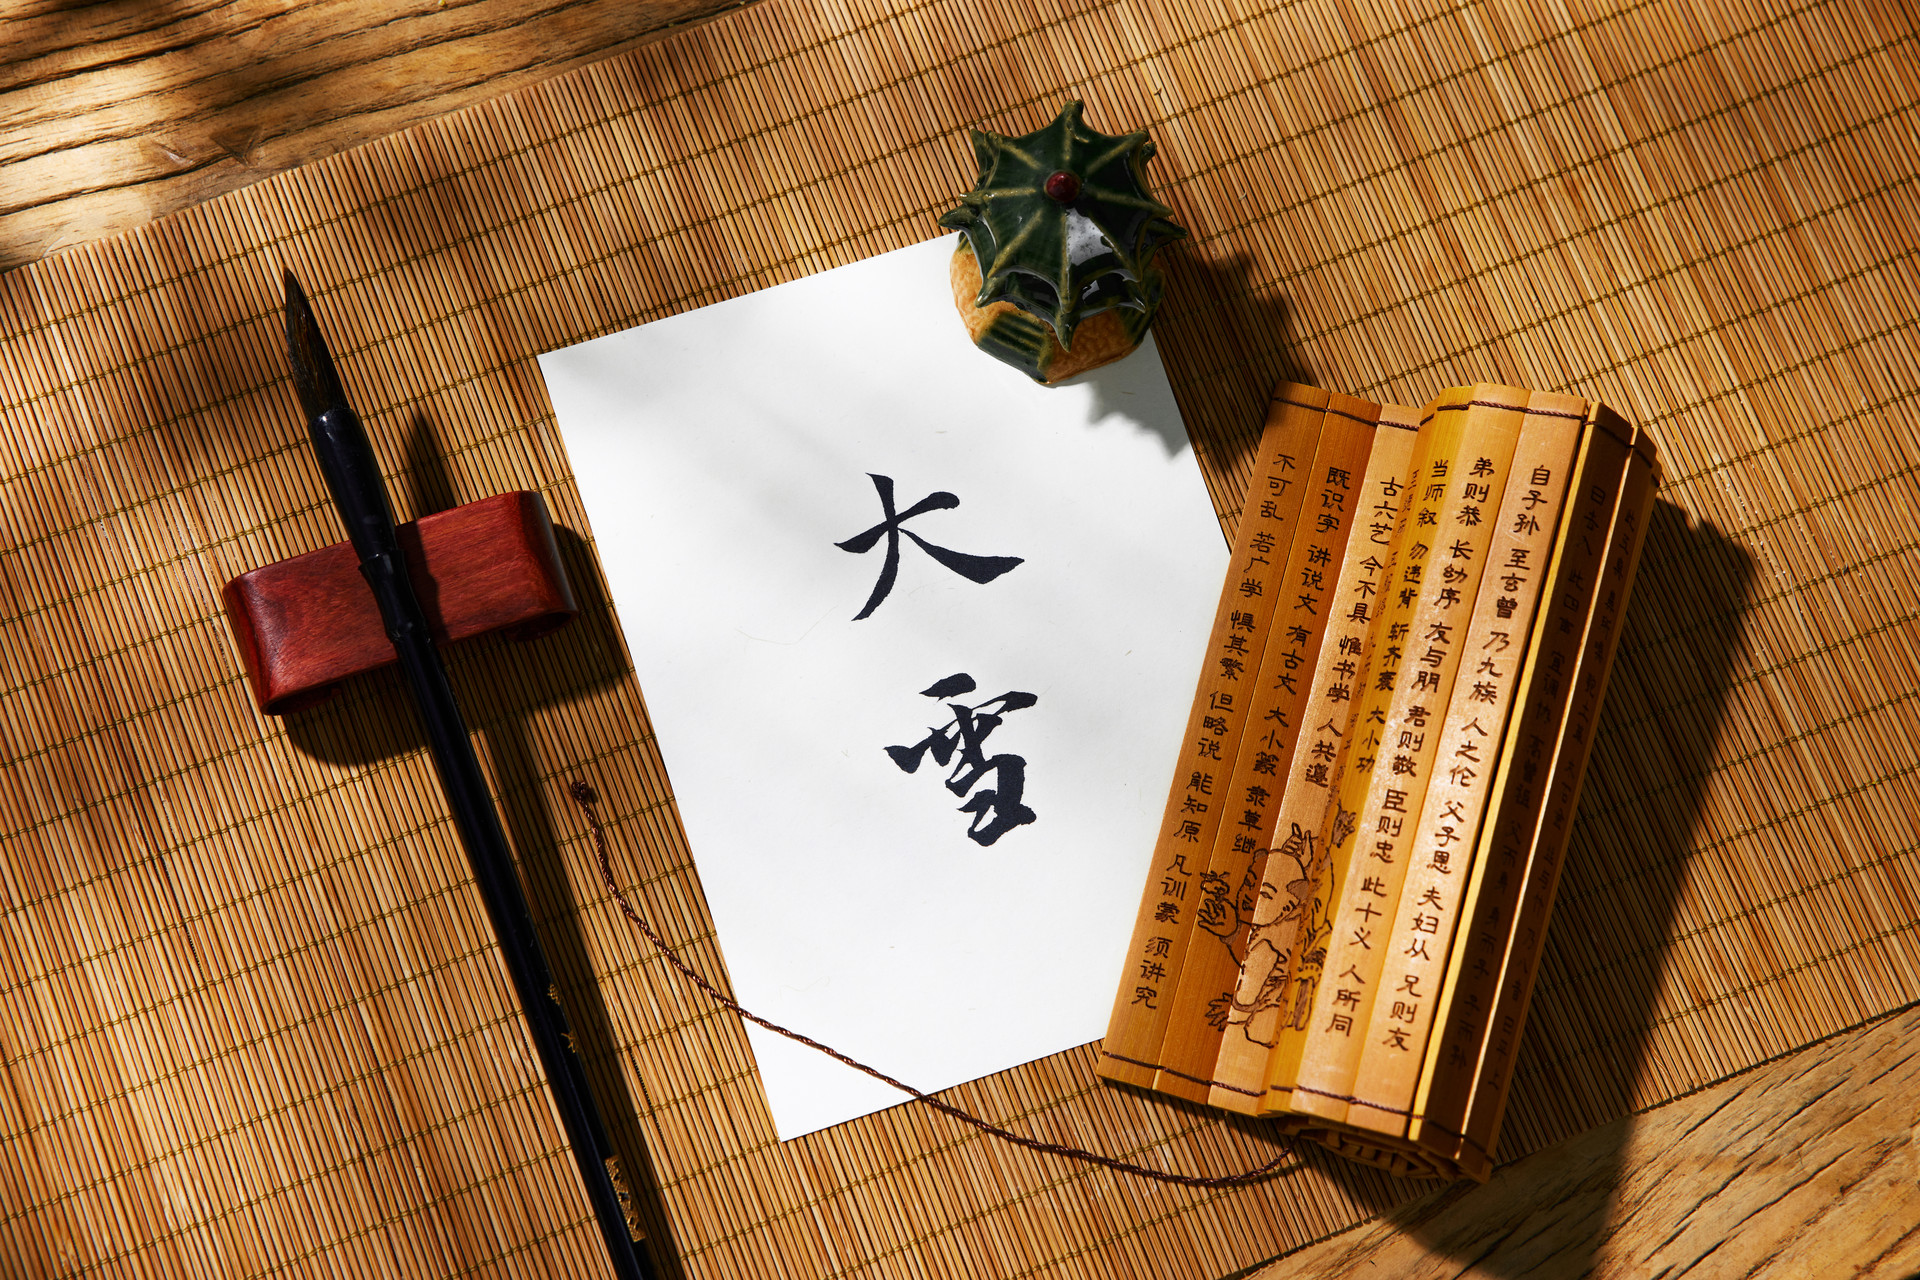 大
雪
曰去入 此四声 宜调协 高曾祖 父而身 身而子 子而孙
自子孙 至玄曾 乃九族 人之伦 父子恩 夫妇从 兄则友
弟则恭 长幼序 友与朋 君则敬 臣则忠 此十义 人所同
当师叙 勿违背 斩齐衰 大小功
古六艺 今不具 惟书学 人共遵
既识字 讲说文 有古文 大小篆 隶草继
不可乱 若广学 惧其繁 但略说 能知原 凡训蒙 须讲究